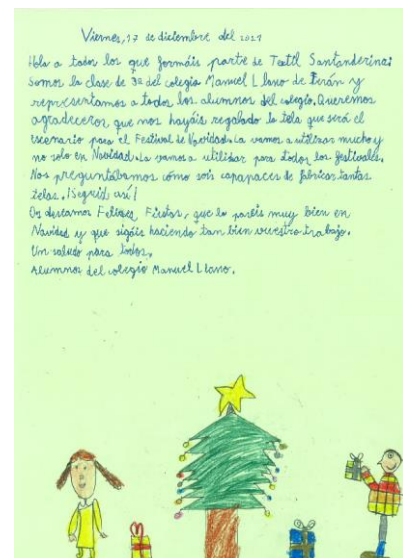 Viernes, 17 de diciembre del 2021
Hola a todos los que formáis parte de Textil Santanderina:
Somos la clase de 3º del colegio Manuel Llano de Terán y
representamos a todos los alumnos del colegio. Queremos
agradeceros que nos hayáis regalado la tela que será el
escenario para el Festival de Navidad. La vamos a utilizar mucho y
no solo en Navidad. La vamos a utilizar para todos los festivales.
Nos preguntábamos cómo sois capapaces de fabricar tantas
telas. ¡Seguid así!
Os deseamos Felices Fiestas, que lo paséis muy bien en
Navidad y que sigáis haciendo tan bien vuestro trabajo.
Un saludo para todos.
Alumnos del colegio Manuel Llano.